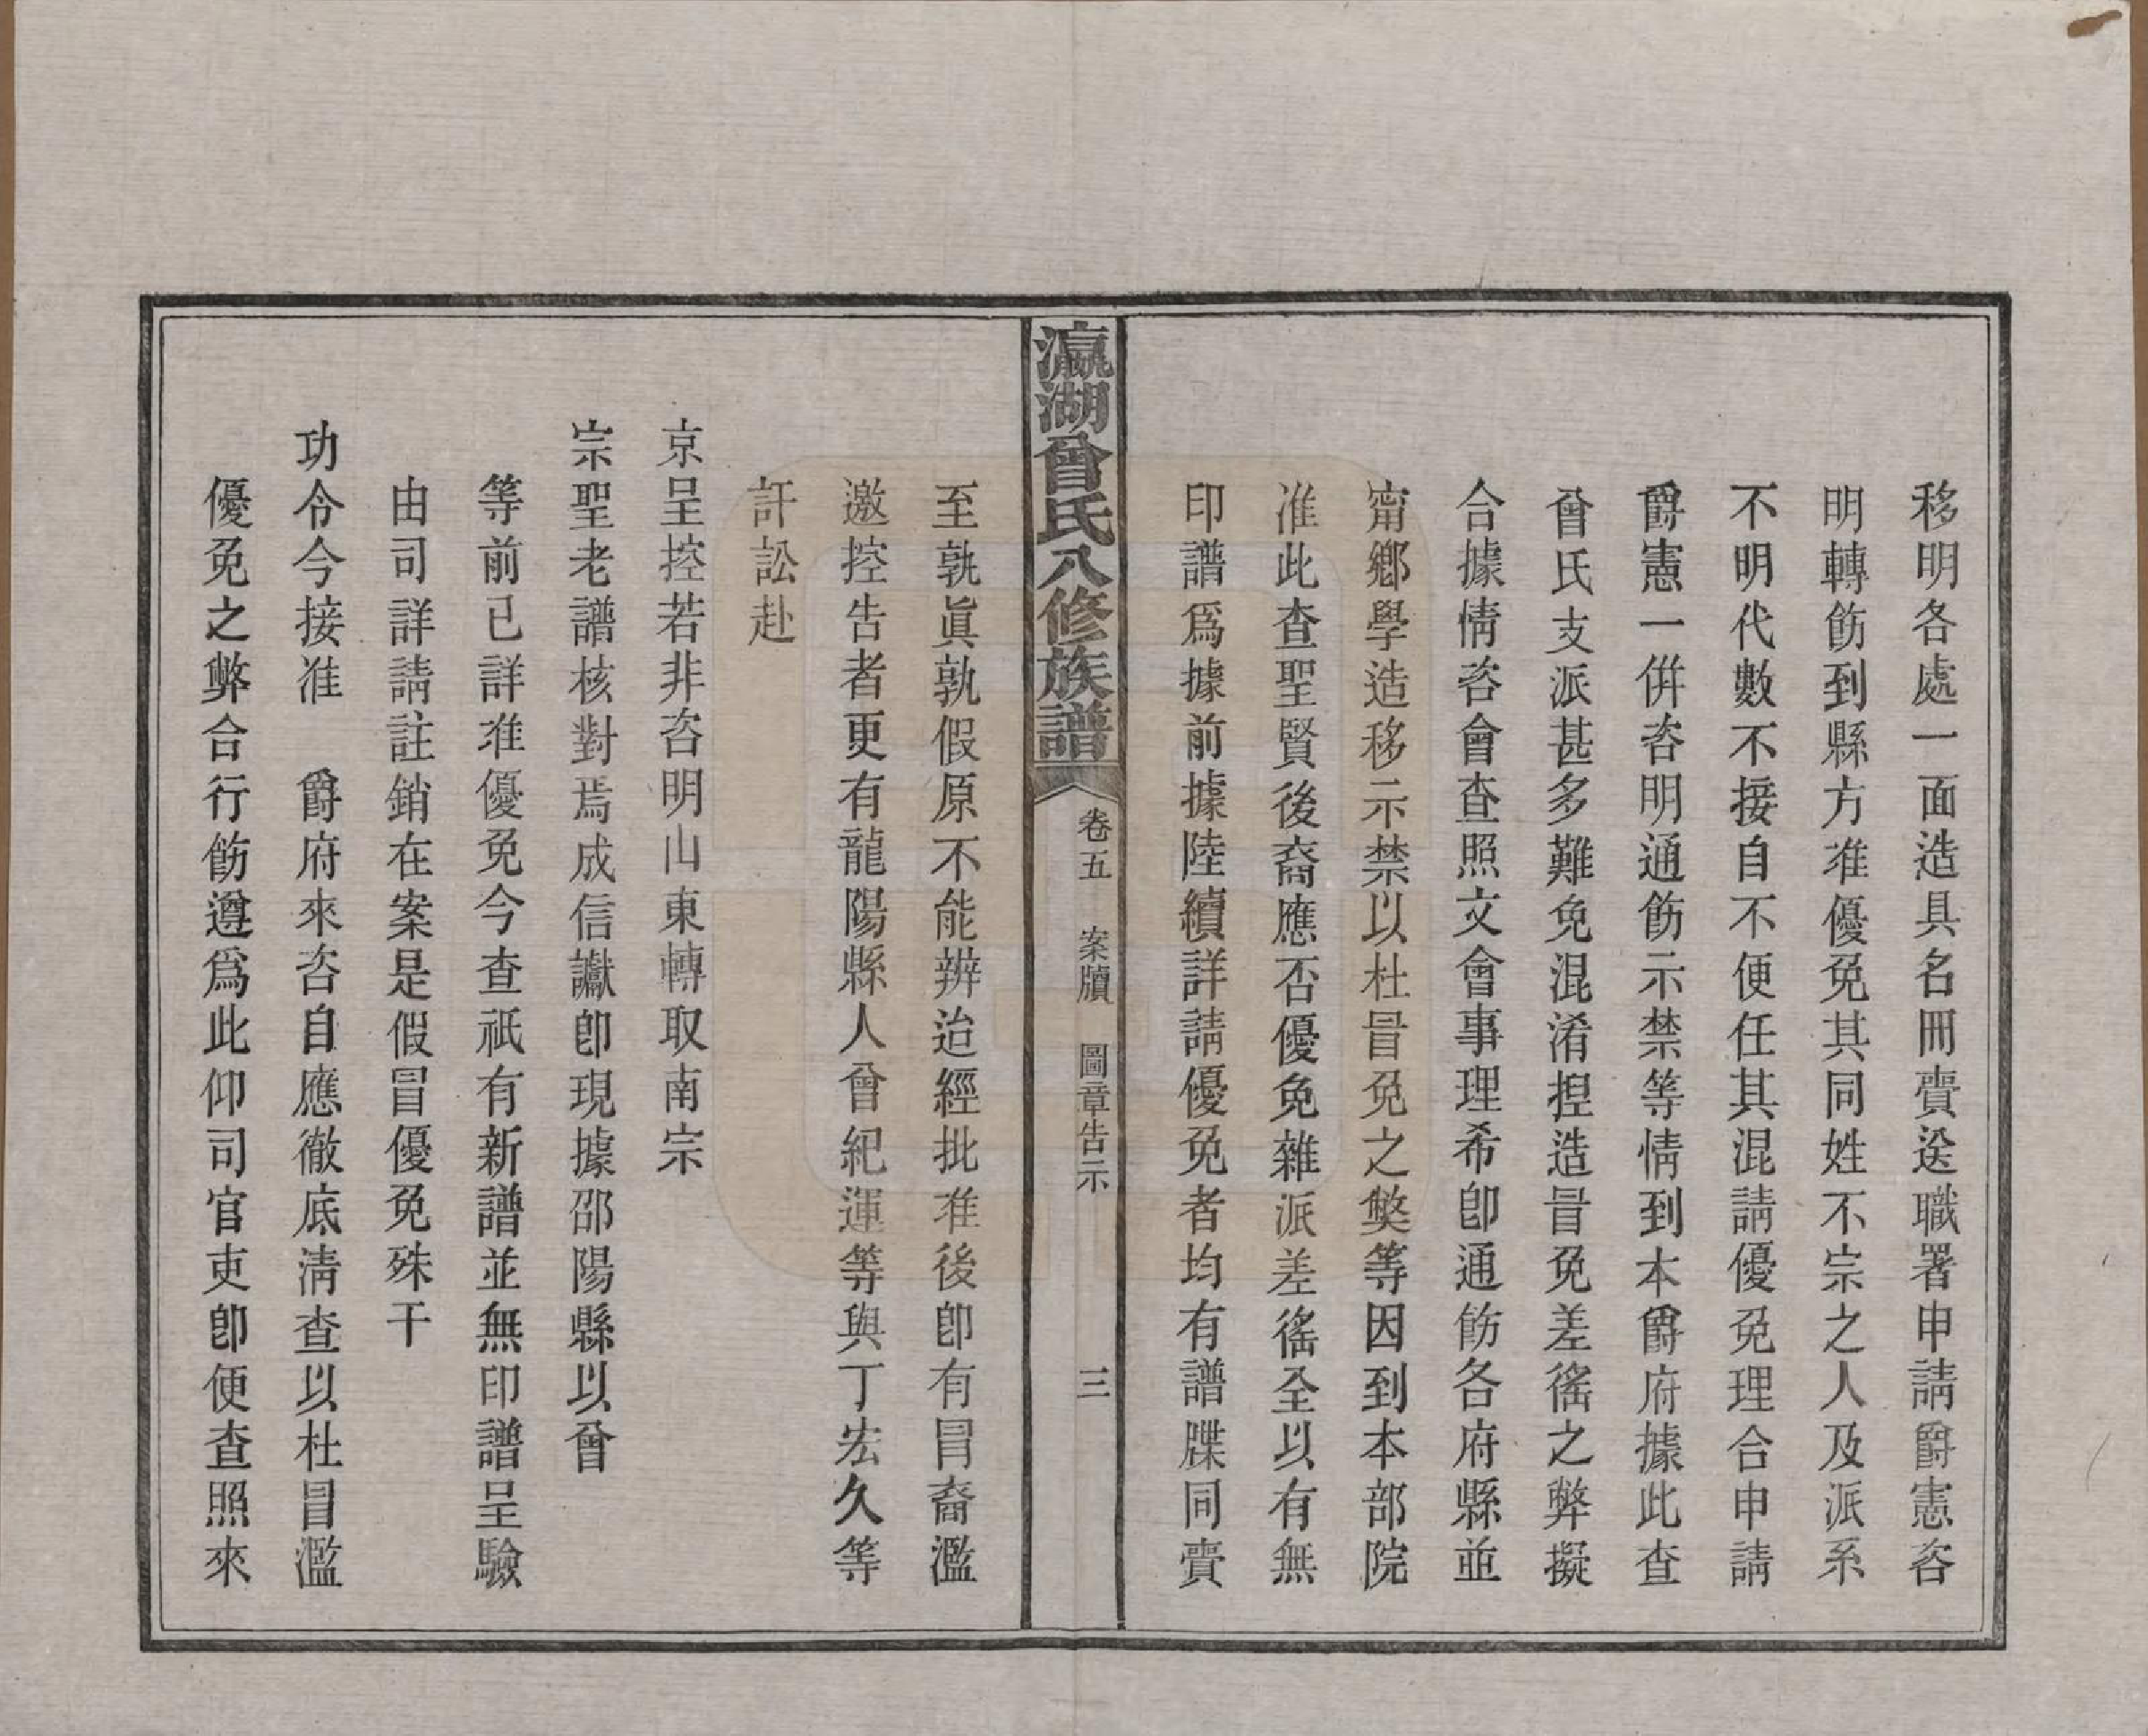 移明各處一面造具名冊賫送職署申請爵憲咨
明轉飭到縣方准優免其同姓不宗之人及派系
不明代數不接自不便任其混請優免理合申請
爵憲一併咨明通飭示禁等情到本爵府據此查
曾氏支派甚多難免混淆揑造冐免差徭之弊擬
合據情咨會查照文會事理希卽通飭各府縣並
甯鄉學造移示禁以杜冐免之獘等因到本部院
准此查聖賢後裔應否優免雜派差徭全以有無
印譜爲據前據陸續詳請優免者均有譜牒同賫
瀛湖曾氏八修族譜 卷五 案牘 圖章告示 三
至孰眞孰假原不能辨迨經批准後卽有冒裔濫
邀控告者更有龍陽縣人曾紀運等與丁宏久等
訐訟赴
京呈控若非咨明山東轉取南宗
宗聖老譜核對焉成信讞卽現據邵陽縣以曾
等前已詳准優免今查祇有新譜並無印譜呈驗
由司詳請註銷在案是假冒優免殊干
功令今接准 爵府來咨自應徹底清查以杜冒濫
優免之弊合行飭遵爲此仰司官吏卽便查照來